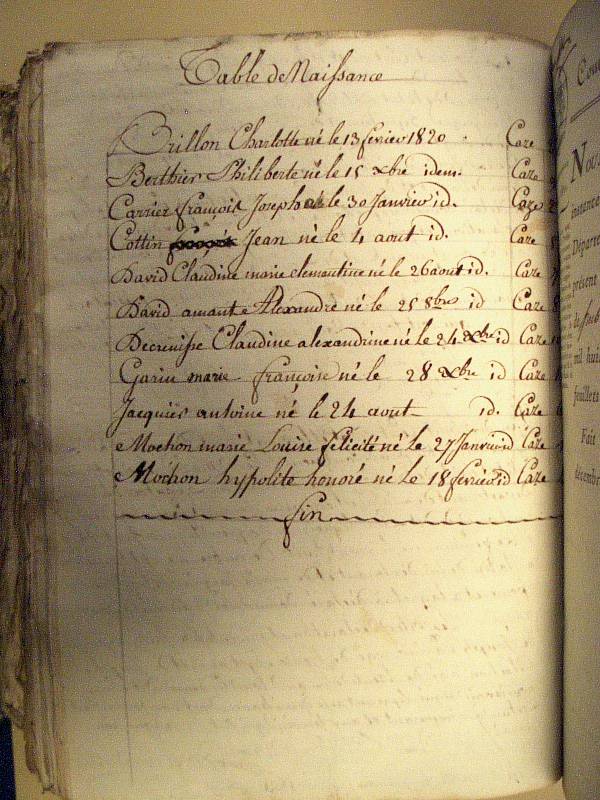 Table de Naissance
Brillon Charlotte né le 13 fevrier 1820 Caze
Berthier Philiberte né le 15 xbre idem. Caze
Carrier françois Joseph né le 30 Janvier id. Caze
Cottin Jean né le 4 aout id. Caze
David Claudine marie clementine né le 26 aout id. Caze
David amante Alexandre né le 25 8bre id Caze
Decrenisse Claudine alexandrine né le 24 xbre id Caze
Garin marie françoise né le 28 xbre id Caze
Jacquier antoine né le 24 aout id. Caze
Mochon marie Louise félicité né le 27 Janvier id Caze
Mochon hypolite honoré né le 18 février id Caze
fin
Nou
Départe
présent
mil hui
feuillets
Fait
décembr